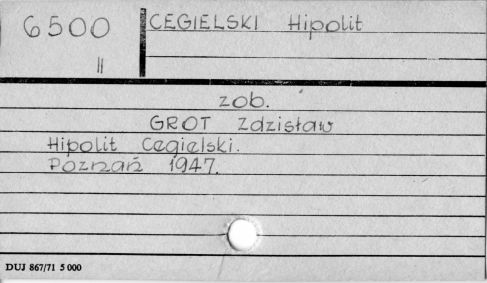 6500
II
CEGIELSKI Hipolit
zob.
GROT Zdzisław
Hipolit Cegielski.
Poznań 1947.
DUJ 867/71 5 000